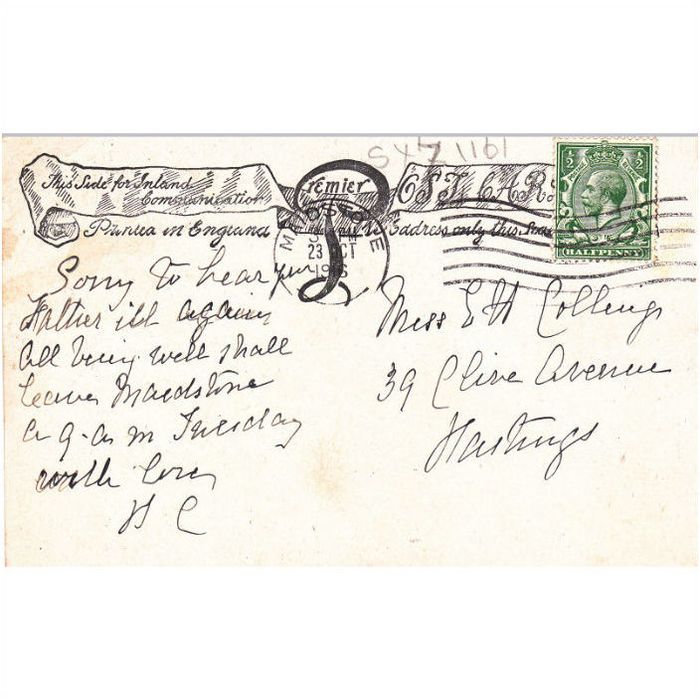 SXZ 1161
This Side for Inland
Communication
Premier
POST CARD
Printed in England
Address only this Side
MAIDSTONE
23 OCT
HALFPENNY
1/2
1/2
Sorry to hear your
Father ill again
all being well shall
leave Maidstone
a 9-a m Tuesday
with love
H C
Miss E H Collings
39 Clive Avenue
Hastings